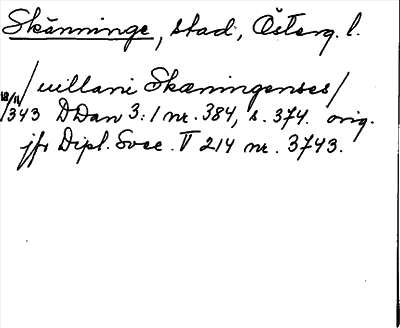 Skänninge, stad, Österg. l.
/uillani Skæningenses/
18/11 1343 DDan 3:1 nr. 384, s. 374. orig.
jfr Dipl. Svec. V 214 nr. 3743.